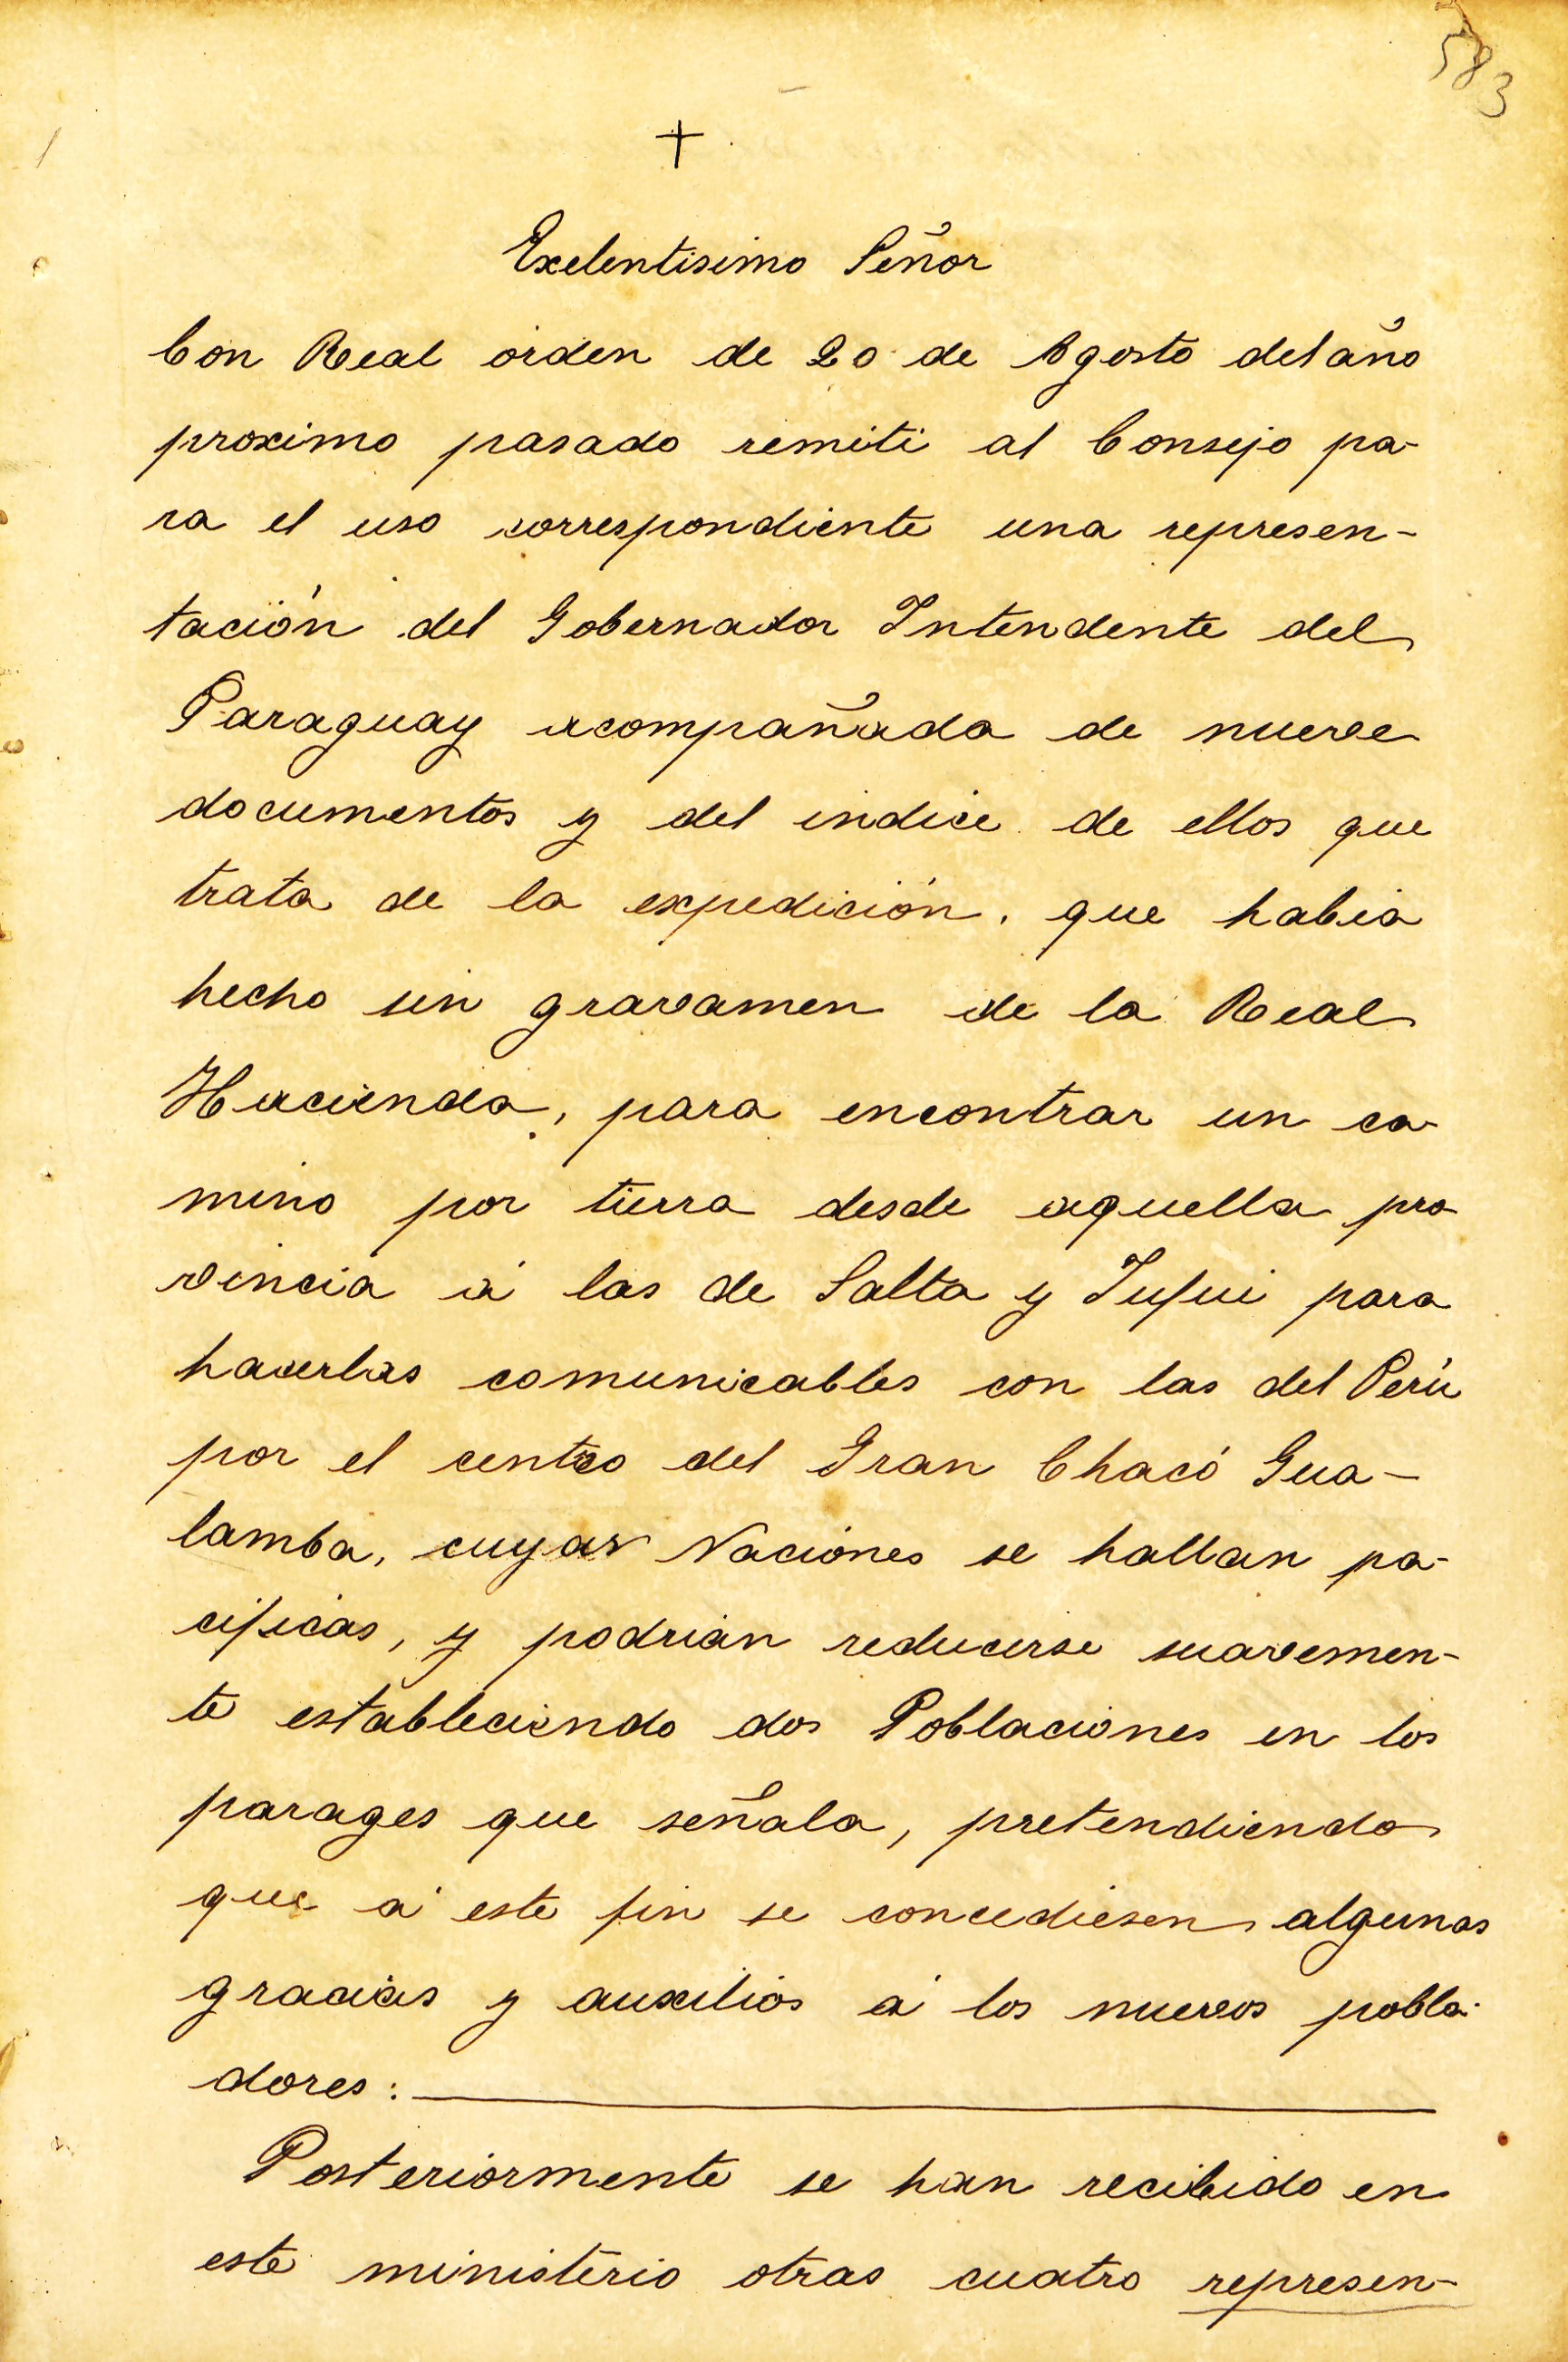 583
+
Exelentisimo Señor
Con Real orden de 20 de Agosto del año
proximo pasado remiti al Consejo pa-
ra el uso correspondiente una represen-
tación del Gobernador Intendente del
Paraguay acompañada de nueve
documentos y del indice de ellos que
trata de la expedición, que habia
hecho sin gravamen de la Real
Hacienda, para encontrar un ca-
mino por tierra desde aquella pro-
vincia á las de Salta y Jujui para
hacerlas comunicables con las del Perú
por el centro del Gran Chacó Gua-
lamba, cuyas Naciones se hallan pa-
cificas, y podrian reducirse suavemen-
te estableciendo dos Poblaciones en los
parages que señala, pretendiendo
que á este fin se concediesen algunas
gracias y auxilios á los nuevos pobla-
dores:
Posteriormente se han recibido en
este ministerio otras cuatro represen-